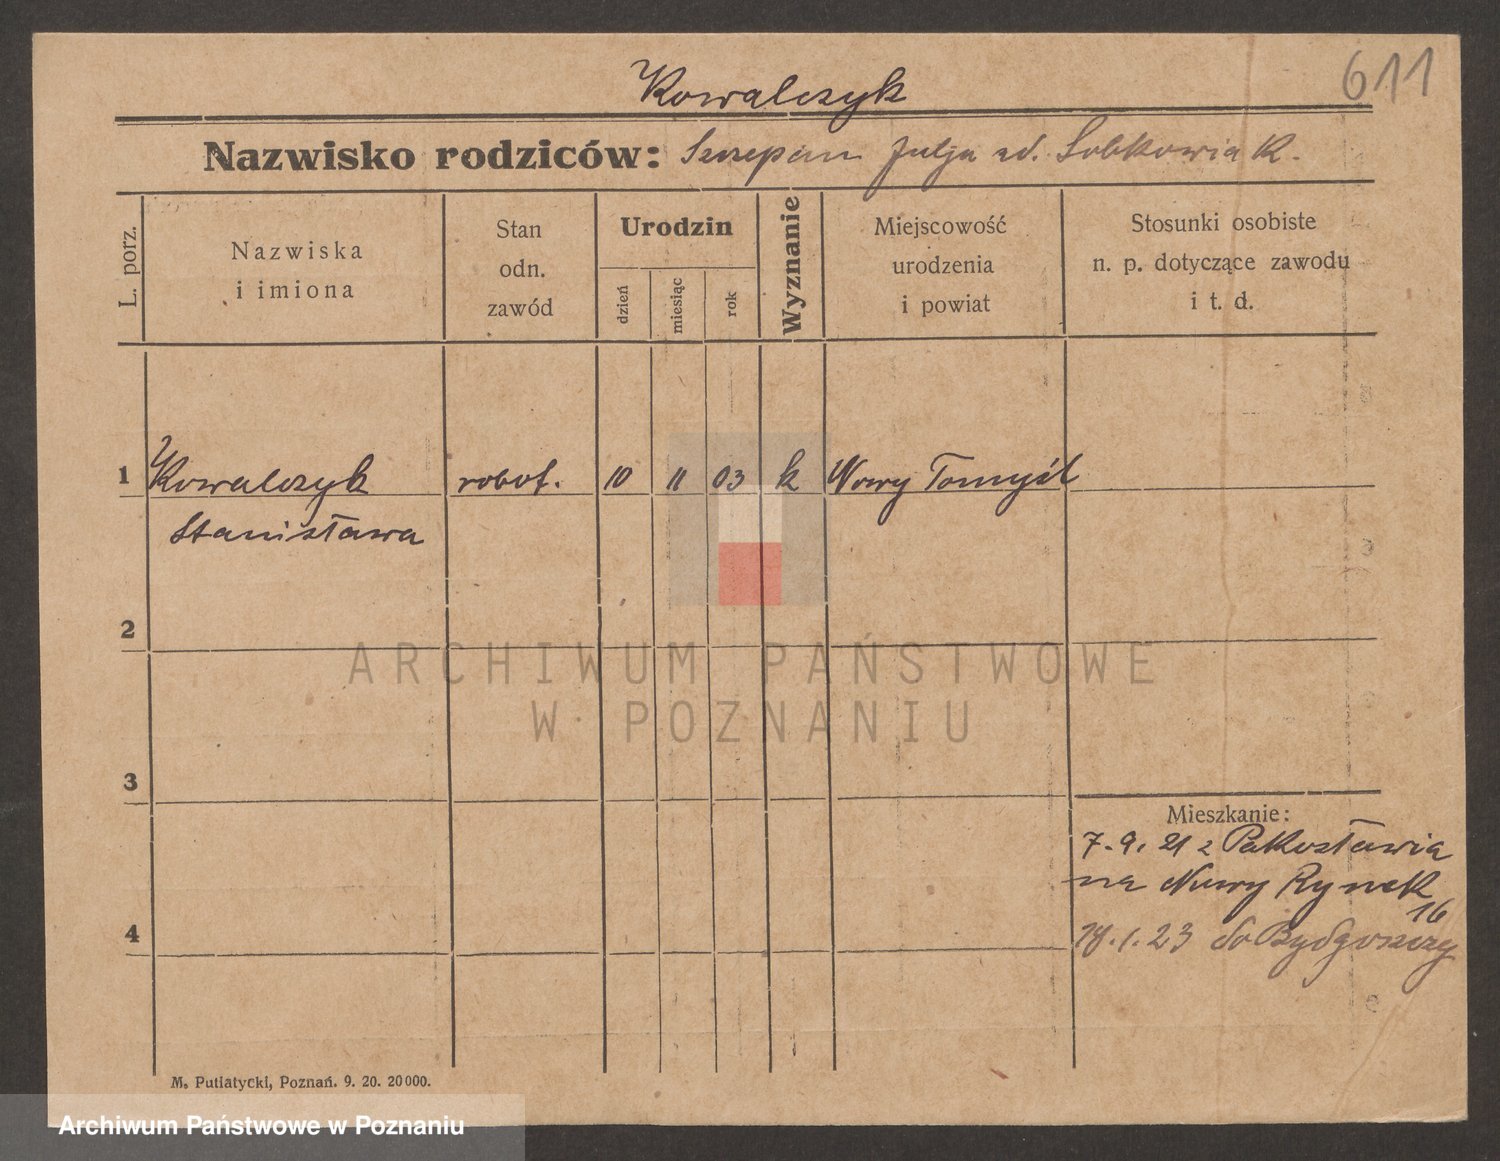 611
Kowalczyk
Nazwisko rodziców: Szczepan Julja zd. Sobkowiak.
L. porz.
Nazwiska
i imiona
Stan
odn.
zawód
Urodzin
dzień
miesiąc
rok
Wyznanie
Miejscowość
urodzenia
i powiat
Stosunki osobiste
n. p. dotyczące zawodu
i t. d.
1 Kowalczyk robot. 10 11 03 k Nowy Tomyśl
Stanisława
2
3
4
Mieszkanie:
7.9.21 z Pakosławia
na Nowy Rynek
16
18.1.23 do Bydgoszczy
M. Putiatycki, Poznań. 9. 20. 20000.
ARCHIWUM PAŃSTWOWE
W POZNANIU
Archiwum Państwowe w Poznaniu